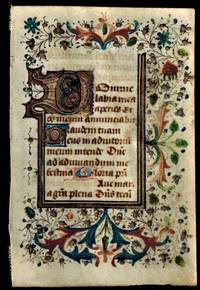 Domine
labia mea
aperies Et
os meum annunciabit
laudem tuam
Deus in adiutoriu
meum intende Dne
ad adiuvandum me
festina Gloria pri
Ave mar
gra plena Dns tecu